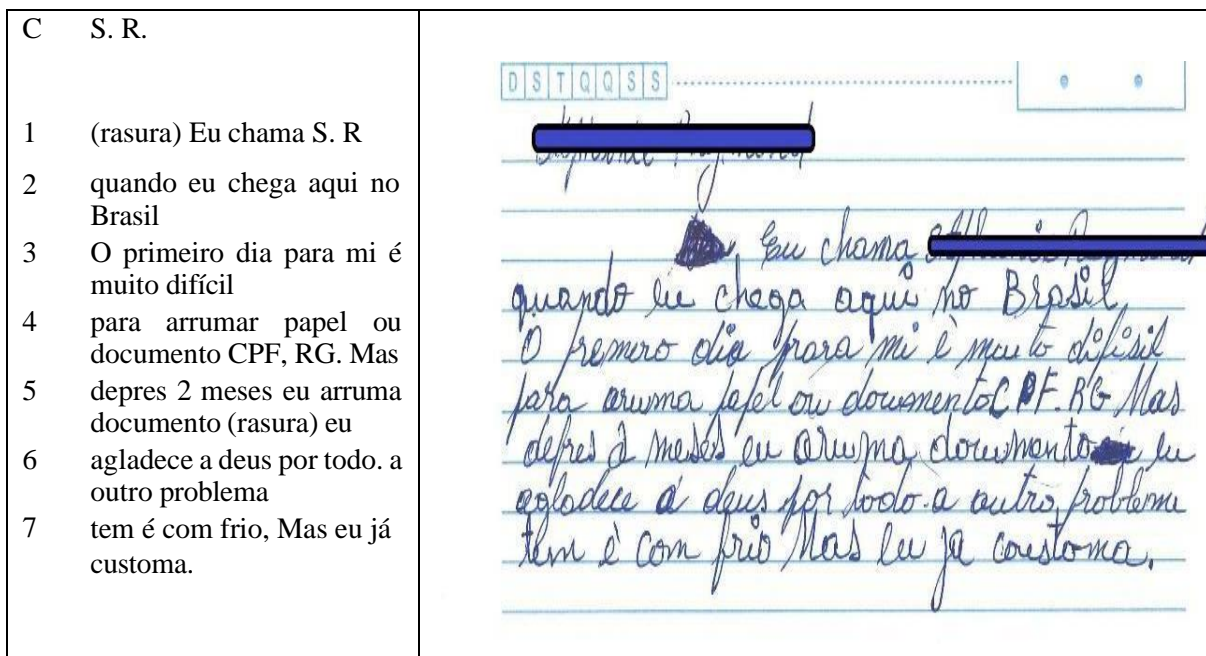 C S. R.
1 (rasura) Eu chama S. R
2 quando eu chega aqui no
Brasil
3 O primeiro dia para mi é
muito difícil
4 para arrumar papel ou
documento CPF, RG. Mas
5 depres 2 meses eu arruma
documento (rasura) eu
6 agladece a deus por todo. a
outro problema
7 tem é com frio, Mas eu já
customa.
D S T Q Q S S
Eu chama
quando eu chega aqui no Brasil,
O premero dia para mi è muito difisil
para aruma papel ou documento CPF. RG Mas
depres 2 meses eu aruma documento eu
aglodece a deus por todo. a outro probleme
tem è com frio Mas eu ja coustoma.